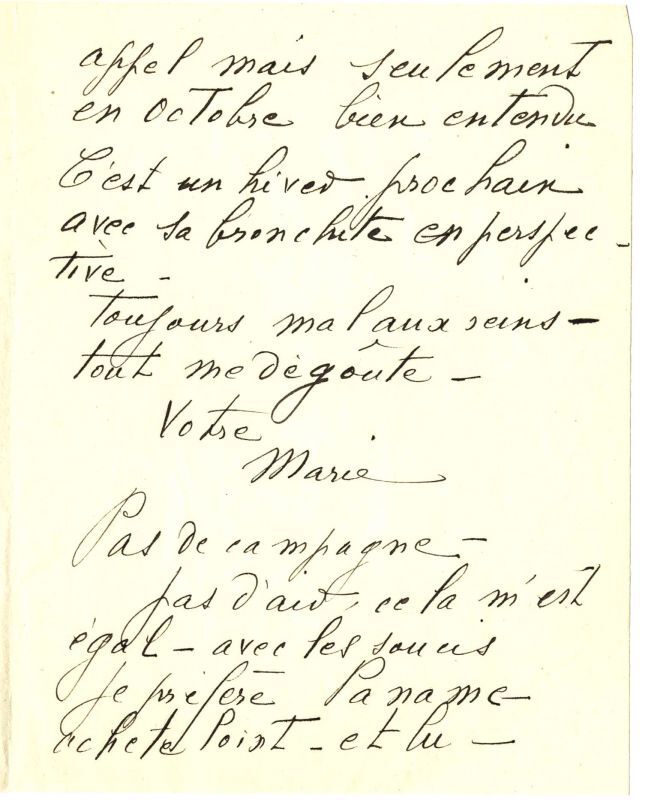 appel mais seulement
en octobre bien entendu
C'est un hiver prochain
avec sa bronchite en perspec-
tive -
toujours mal aux reins -
tout me dégoûte -
Votre
Marie
Pas de campagne -
pas d'air, cela m'est
égal - avec les soucis
je préfère Paname -
achete - et lu -